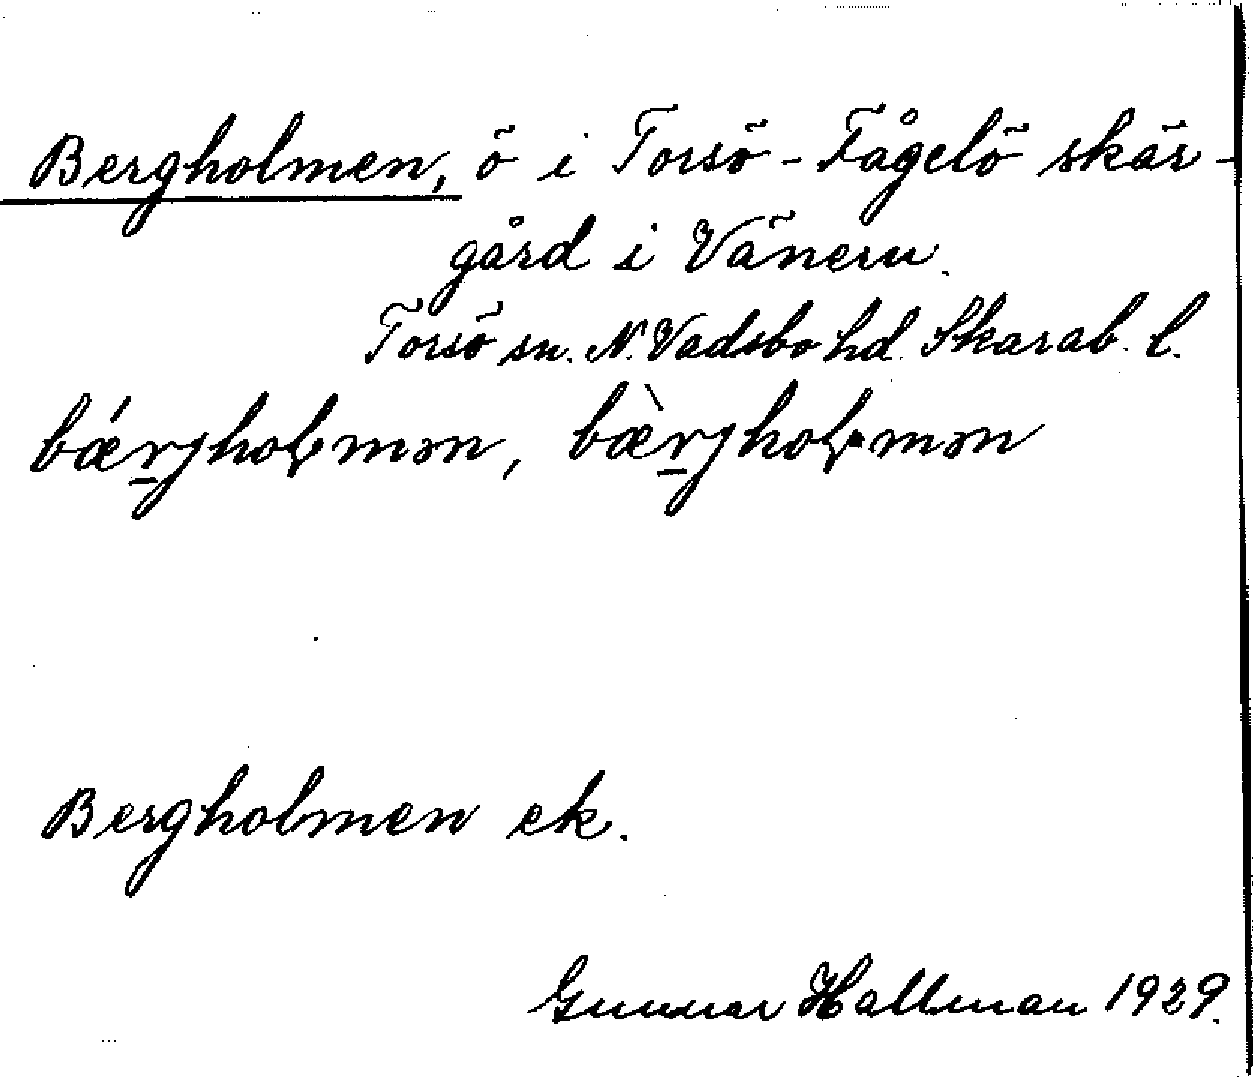 Bergholmen, ö i Torsö-Fågelö skär-
gård i Vänern.
Torsö sn. N. Vadsbo hd. Skarab. l.
bǽr̲jhoḷmən, bæ̀r̲jhoḷ·mən
Bergholmen ek.
Gunnar Hallman 1929.